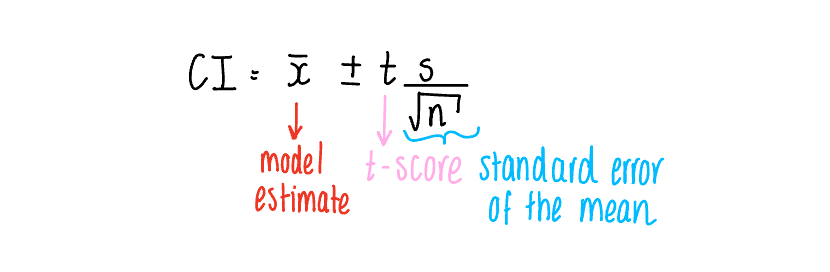 CI = x̄ ± t s/√n
model
estimate
t-score
standard error
of the mean